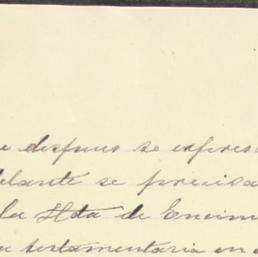 despues se expres
delante se precisa
la Hda de Encim
testamentaria en